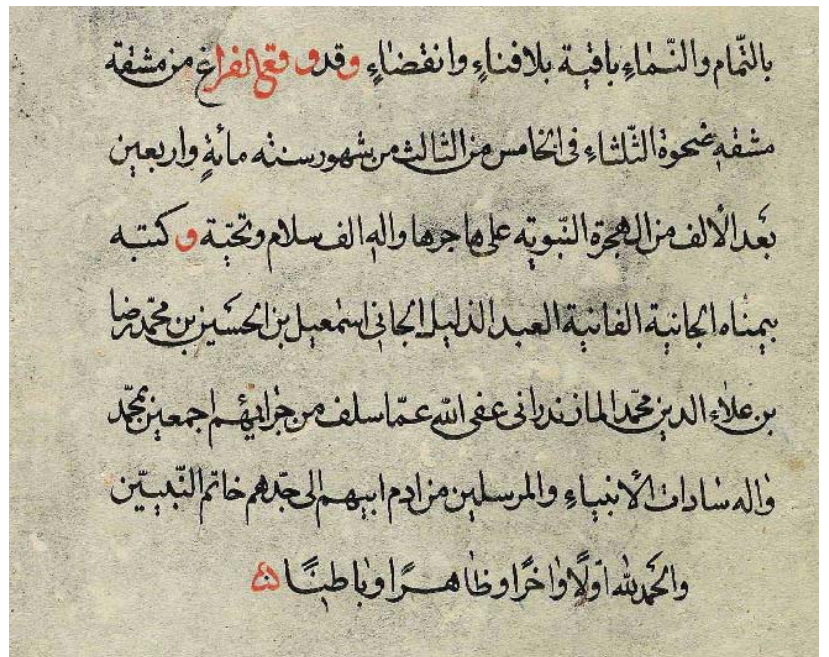 بالتّمام والنّماءِ باقية بلا فناءٍ وانقضاءٍ وقد وقع الفراغ من مشقه
مشقه ضحوة الثّلثاءِ فى الخامس من الثالث من شهور سنته مائةٍ واربعين
بَعد الألف من الهجرة النّبويّه على هاجرها واله الف سلام وتحيّة وكتبه
بيمناه الجانية الفانية العبد الذليل الجانى اسمٰعيل بن الحسين بن محمّد رضا
بن علاءِ الدين محمّد المازندرانى عفى الله عمّا سلف من جرايئهم اجمعين بمحمّد
واله سادات الأنبياءِ والمرسلين من ادم ابيهم الى جدّهم خاتم النّبيّين
والحَمد لله اوّلًا واخرًا وظاهرًا وباطنًا